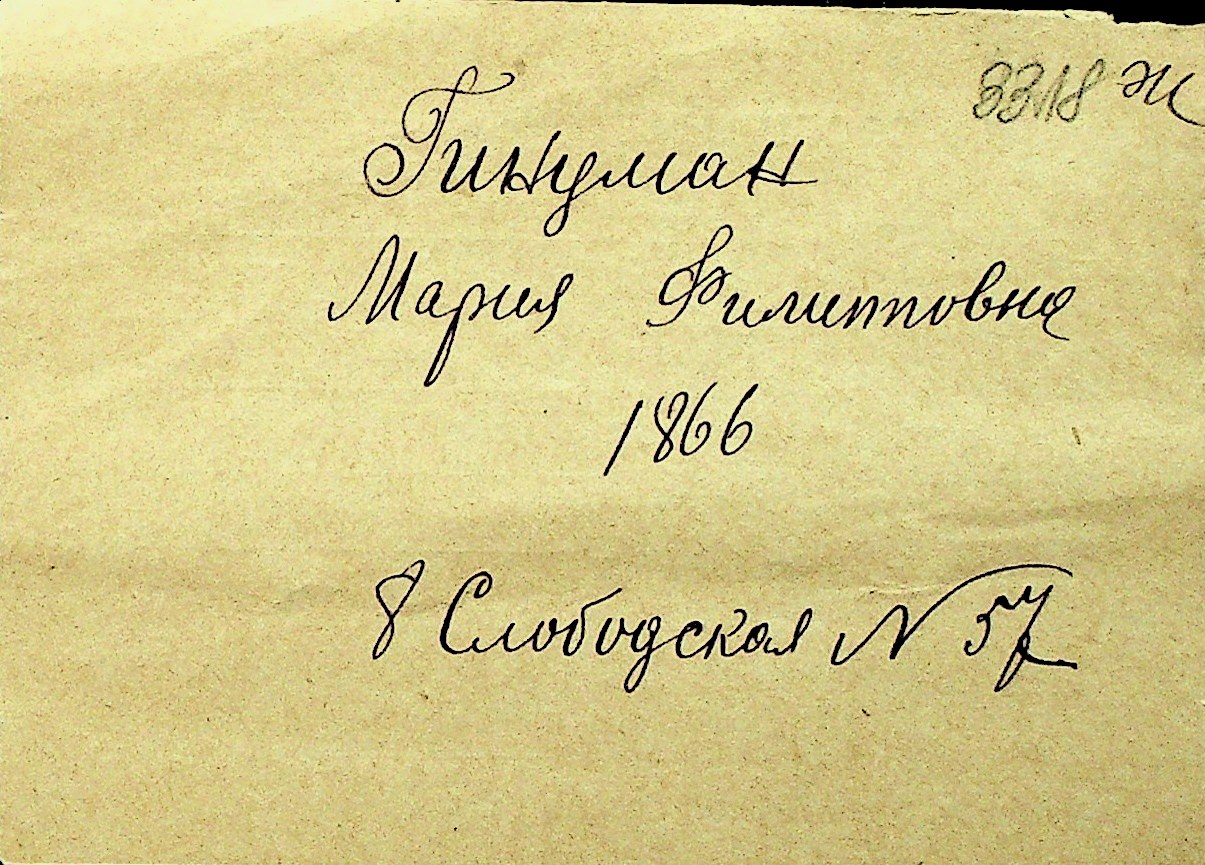 3318 ж
Гинцман
Мария Филипповна
1866
8 Слободская N 57